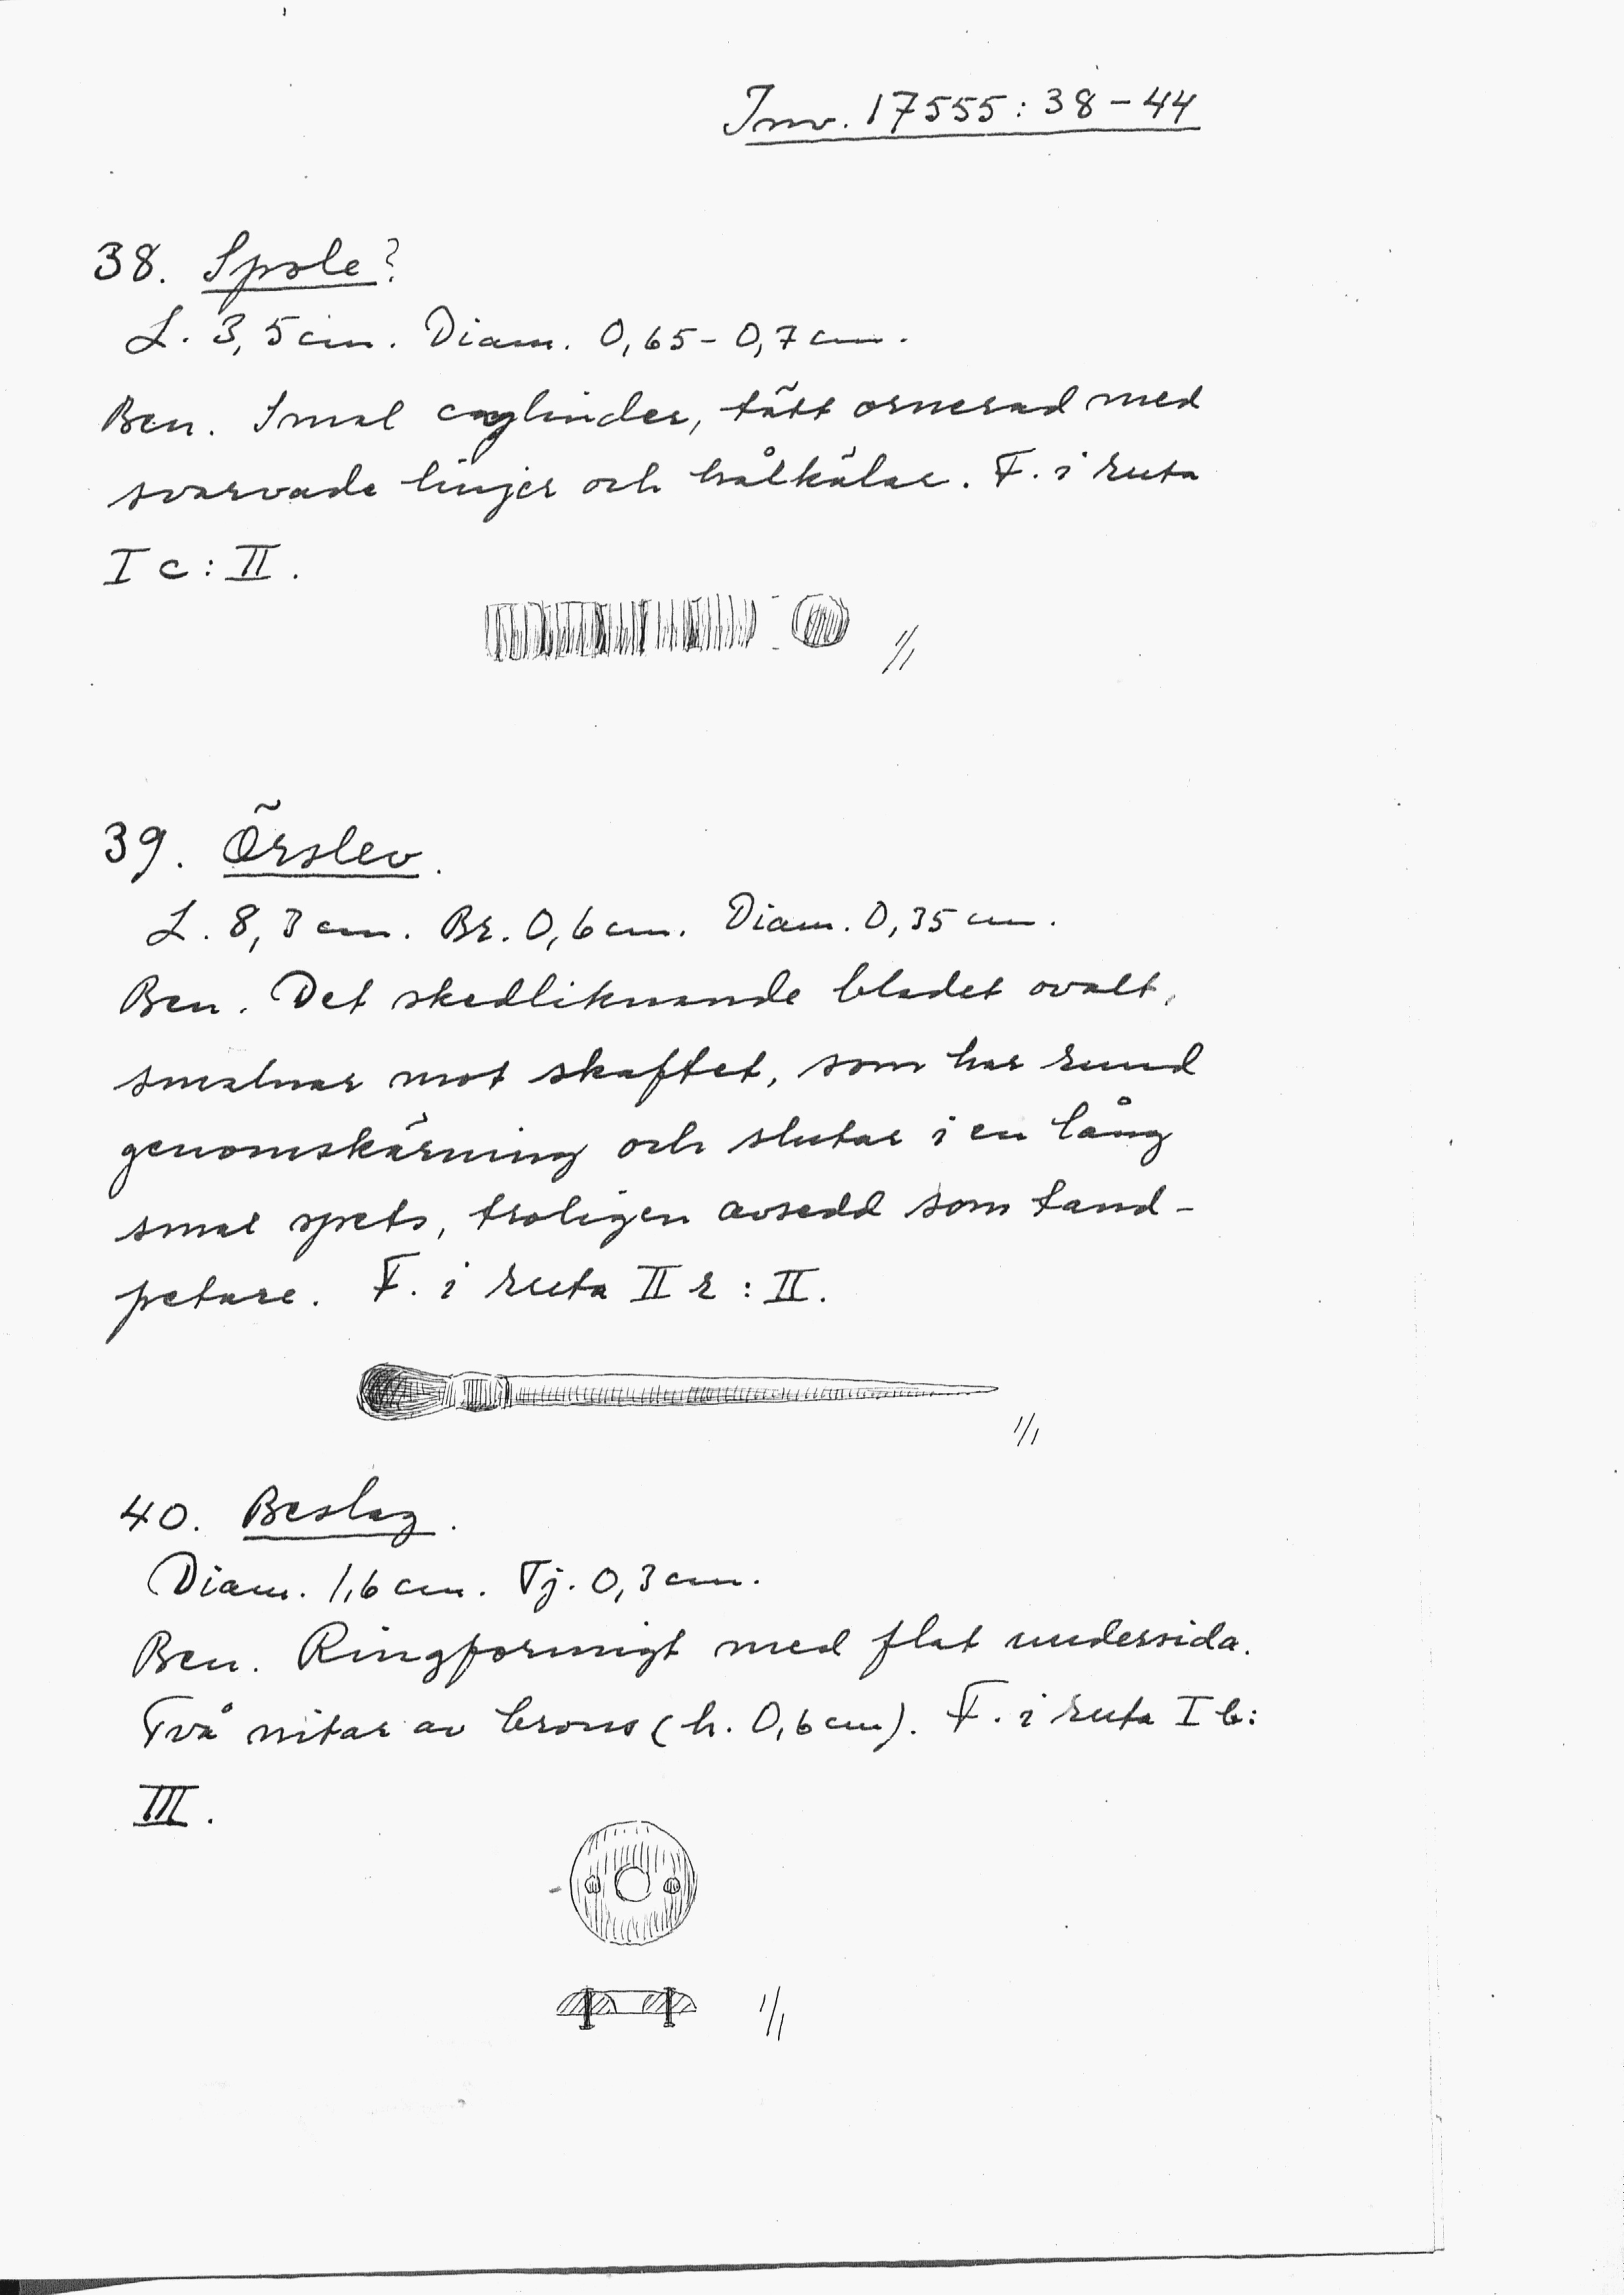 Inv. 17555:38-44
38. Spole?
L. 3,5 cm. Diam. 0,65-0,7 cm.
Ben. Smal cylinder, tätt ornerad med
svarvade linjer och hålkälar. F. i ruta
I c: II.
1/1
39. Örslev.
L. 8,3 cm. Br. 0,6 cm. Diam. 0,35 cm.
Ben. Det skedliknande bladet ovalt,
smalnar mot skaftet, som har rund
genomskärning och slutar i en lång
smal spets, troligen avsedd som tand-
petare. F. i ruta II r: II.
1/1
40. Beslag.
Diam. 1,6 cm. Tj. 0,3 cm.
Ben. Ringformigt med flat undersida.
Två nitar av brons (h. 0,6 cm). F. i ruta I b:
III.
1/1